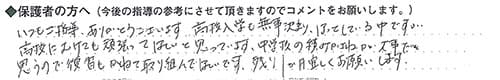 ◆保護者の方へ（今後の指導の参考にさせて頂きますのでコメントをお願いします。）
いつもご指導、ありがとうございます。高校入学も無事決まり、ほっとしている中ですが…
高校にむけても頑張ってほしいと思っています。中学校の積み重ねが大事だと
思うので復習もかねて取り組んでほしいです。残り1か月宜しくお願いします。